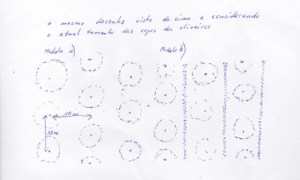 o mesmo desenho visto de cima e considerando
o atual tamanho das copas das oliveiras
Modelo a)
Modelo b)
10 m
10 m